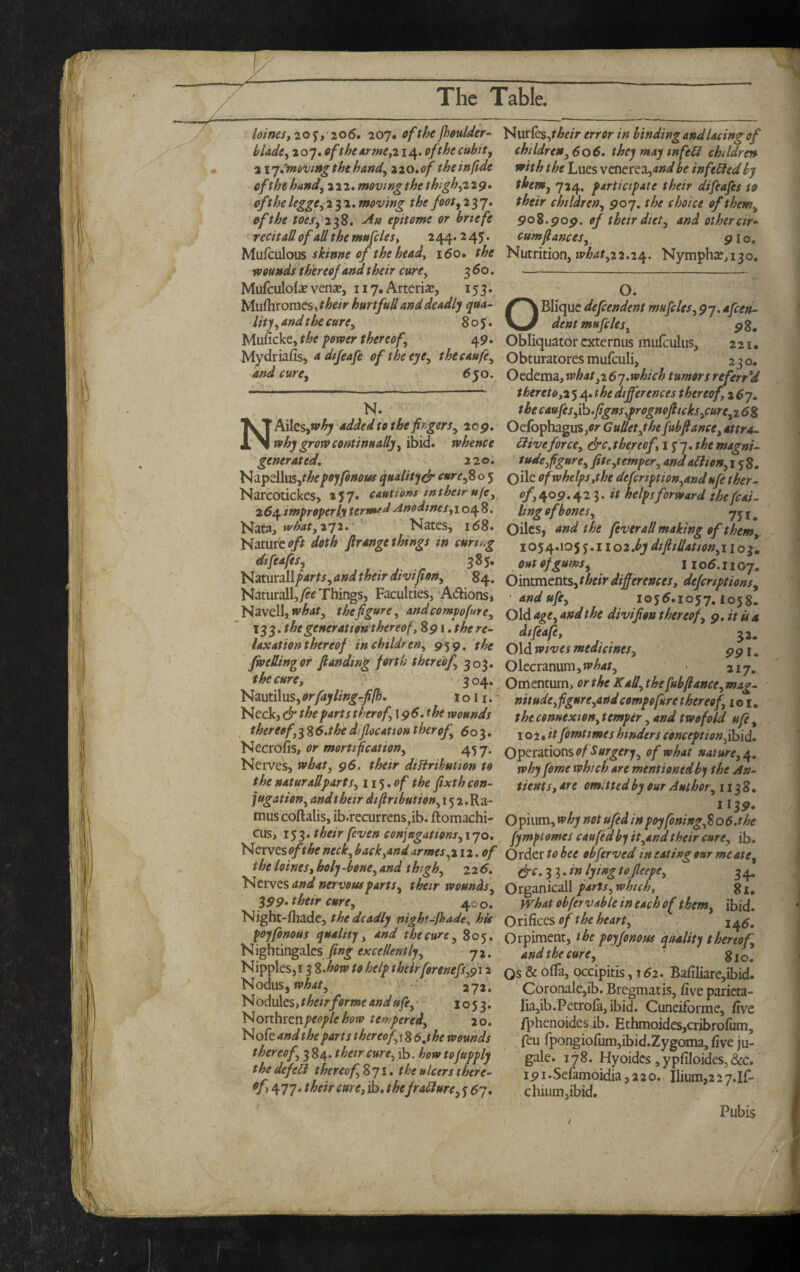 The Table.
loines, 205, 206. 207. of the ſhoulder-
blade, 207. of the arme, 214. of the cubit,
217. moving the hand, 220. of the inſide
of the hand, 222. moving the thigh, 229.
of the legge, 232. moving the foot, 237.
of the toes, 238. An epitome or briefe
recitall of all the muſcles, 244. 245.
Muſculous skinne of the head, 160. the
wounds thereof and their cure, 360.
Muſculoſæ venæ, 117. Arteriæ, 153.
Muſhromes, their hurtfull and deadly qua-
lity, and the cure, 805.
Muſicke, the power thereof, 49.
Mydriaſis, a diſeaſe of the eye, the cauſe,
and cure, 650.
N.
NAiles, why added to the fingers, 209.
why grow continually, ibid. whence
generated. 220.
Napellus, the poyſonous quality & cure, 805
Narcotickes, 257. cautions in their uſe,
264. improperly termed Anodines, 1048.
Nata, what, 272. Nates, 168.
Nature oft doth ſtrange things in curing
diſeaſes, 385.
Naturall parts, and their diviſion, 84.
Naturall, ſee Things, Faculties, Actions,
Navell, what, the figure, and compoſure,
133. the generation thereof, 891. the re-
laxation thereof in children, 959. the
ſwelling or ſtanding forth thereof, 303.
the cure, 304.
Nautilus, or ſayling-fiſh. 1011.
Neck, & the parts therof, 196. the wounds
thereof, 386. the diſlocation therof, 603.
Necroſis, or mortification, 457.
Nerves, what, 96. their diſtribution to
the naturall parts, 115. of the ſixth con-
jugation, and their diſtribution, 152. Ra-
mus coſtalis, ib. recurrens, ib. ſtomachi-
cus, 153. their ſeven conjugations, 170.
Nerves of the neck, back, and armes, 212. of
the loines, holy-bone, and thigh, 226.
Nerves and nervous parts, their wounds,
399. their cure, 400.
Night-ſhade, the deadly night-ſhade, his
poyſonous quality, and the cure, 805.
Nightingales ſing excellently, 72.
Nipples, 138. how to help their ſoreneſs, 912
Nodus, what, 272.
Nodules, their forme and uſe, 1053.
Northren people how tempered, 20.
Noſe and the parts thereof, 186. the wounds
thereof, 384. their cure, ib. how to ſupply
the defect thereof, 871. the ulcers there-
of, 477. their cure, ib. the fracture, 567.
Nurſes, their error in binding and lacing of
children, 606. they may infect children
with the Lues venerea, and be infected by
them, 724. participate their diſeaſes to
their children, 907. the choice of them,
908. 909. of their diet, and other cir-
cumſtances, 910.
Nutrition, what, 22. 24. Nymphæ, 130.
O.
OBlique deſcendent muſcles, 97. aſcen-
dent muſcles, 98.
Obliquator externus muſculus, 221.
Obturatores muſculi, 230.
Oedema, what, 267. which tumors referr'd
thereto, 254. the differences thereof, 267.
the cauſes, ib. ſigns, prognoſticks, cure, 268
Oeſophagus, or Gullet, the ſubſtance, attra-
ctive force, &c. thereof, 157. the magni-
tude, figure, ſite, temper, and action, 158.
Oile of whelps, the deſcription, and uſe ther-
of, 409. 423. it helps forward the ſcai-
ling of bones, 751.
Oiles, and the ſeverall making of them,
1054. 1055. 1102. by diſtillation, 1103.
out of gums, 1106. 1107.
Ointments, their differences, deſcriptions,
and uſe, 1056. 1057. 1058.
Old age, and the diviſion thereof, 9. it is a
diſeaſe, 32.
Old wives medicines, 991.
Olecranum, what, 217.
Omentum, or the Kall, the ſubſtance, mag-
nitude, figure, and compoſure thereof, 101.
the connexion, temper, and twofold uſe,
102. it ſomtimes hinders conception, ibid.
Operations of Surgery, of what nature, 4.
why ſome which are mentioned by the An-
tients, are omitted by our Author, 1138.
1139.
Opium, why not uſed in poyſoning, 806. the
ſymptomes cauſed by it, and their cure, ib.
Order to bee obſerved in eating our meate,
&c. 33. in lying to ſleepe, 34.
Organicall parts, which, 81.
What obſervable in each of them, ibid.
Orifices of the heart, 146.
Orpiment, the poyſonous quality thereof,
and the cure, 810.
Os & oſſa, occipitis, 162. Baſiliare, ibid.
Coronale, ib. Bregmatis, ſive parieta-
lia, ib. Petroſa, ibid. Cuneiforme, ſive
ſphenoides ib. Ethmoides, cribroſum,
ſeu ſpongioſum, ibid. Zygoma, ſive ju-
gale. 178. Hyoides, ypſiloides, &c.
191. Seſamoidia, 220. Ilium, 227. Iſ-
chium, ibid.
Pubis